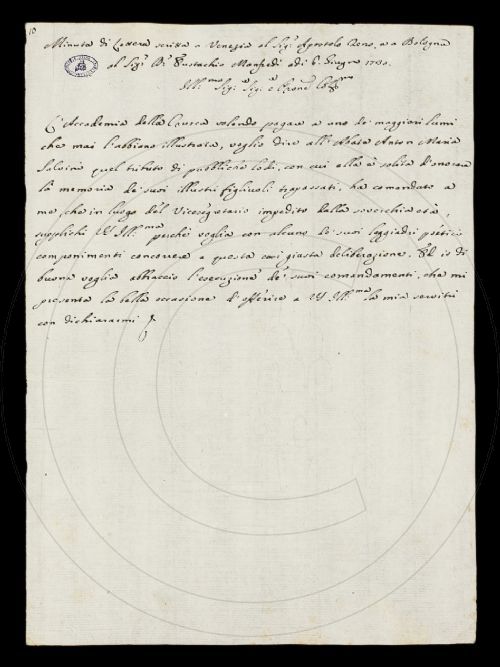 10
Minuta di Lettera scritta a Venezia al Sig.r Apostolo Zeno, e a Bologna
al Sig.r Dr. Eustachio Manfredi adi 6. Giugno 1730.
Ill.mo Sig.r Sig.r e Prone Col.mo
L'Accademia della Crusca volendo pagare a uno de' maggiori lumi
che mai l'abbiano illustrata, voglio dire all'Abate Anton Maria
Salvini quel tributo di pubbliche lodi, con cui ella è solita d'onorare
la memoria de' suoi illustri figliuoli trapassati, ha comandato a
me, che in luogo del Vicesegretario impedito dalla soverchia età,
supplichi VS Ill.ma perchè voglia con alcuno de' suoi leggiadri poetici
componimenti concorrere a questa così giusta deliberazione. Ed io di
buona voglia abbraccio l'esecuzione de' suoi comandamenti, che mi
presenta la bella occasione d'offerire a VS Ill.ma la mia servitù
con dichiararmi